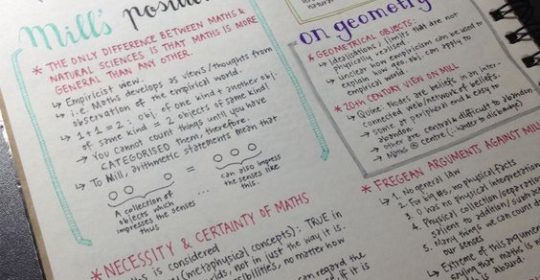 Mill's
* THE ONLY DIFFERENCE BETWEEN MATHS &
NATURAL SCIENCES IS THAT MATHS IS MORE
GENERAL THAN ANY OTHER.
↳ Empiricist view.
↳ i.e. Maths develops as views/thoughts from
observation of the empirical world.
↳ 1+1=2: obj. of one kind + another obj.
of same kind = 2 objects of same kind!
↳ You cannot count things until you have
CATEGORISED them, therefore.
↳ To Mill, arithmetic statements mean that
=
A collection of
objects which
impresses the
senses thus
...
can also impress
the senses like
this.
* NECESSITY & CERTAINTY OF MATHS
is considered
(metaphysical concepts): TRUE in
not in just the way it is.
no matter how
can regard the
if it is
on geometry
* GEOMETRICAL OBJECTS:
↳ Idealisations/limits that are not
physically realised.
↳ unclear how empiricism can be used to
explain how geo. obj. can apply to
empirical world.
* 20th CENTURY VIEW ON MILL
↳ Quine: Nodes are beliefs in an inter-
connected web/network of beliefs.
↳ some at peripheral end & easy to
abandon
↳ other are central & difficult to abandon
↳ Maths @ centre (∴ harder to disbandon)
* FREGEAN ARGUMENTS AGAINST MILL
1. No general law
2. For big nos, no physical facts
3. 0 has no physical interpretation
4. Physical collection
salient to addition/such as
5. Many things we can count
our senses
6. Extreme of this argument
saying that maths is not
about